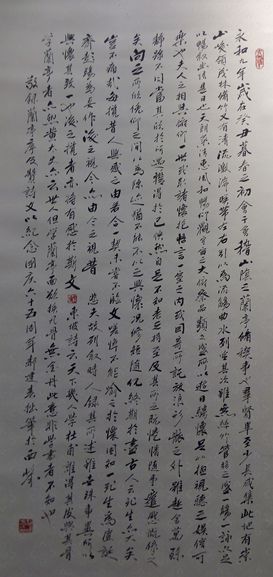 永和九年歲在癸丑暮春之初會于會稽山陰之蘭亭脩禊事也群賢畢至少長咸集此地有崇
山峻領茂林脩竹又有清流激湍暎帶左右引以為流觴曲水列坐其次雖無絲竹管弦之盛一觴一詠亦足
以暢敘幽情是日也天朗氣清惠風和暢仰觀宇宙之大俯察品類之盛所以遊目騁懷足以極視聽之娛信可
樂也夫人之相與俯仰一世或取諸懷抱悟言一室之內或因寄所託放浪形骸之外雖趣舍萬殊
靜躁不同當其欣於所遇暫得於己怏然自足不知老之將至及其所之既惓情隨事遷感慨係之
矣向之所欣俛仰之間以為陳迹猶不能不以之興懷況脩短隨化終期於盡古人云死生亦大矣
豈不痛哉每攬昔人興感之由若合一契未嘗不臨文嗟悼不能喻之於懷固知一死生為虛誕
齊彭殤為妄作後之視今亦由今之視昔 悲夫故列敘時人錄其所述雖世殊事異所以
興懷其致一也後之攬者亦將有感於斯文 東坡詩云天下幾人學杜甫誰得其皮與其骨
學蘭亭者亦如黃太史亦云世人但學蘭亭面欲換凡骨無金丹此意非學書者不知也
敬錄蘭亭序及贊詩文以紀念國慶六十五周年郝建書於西